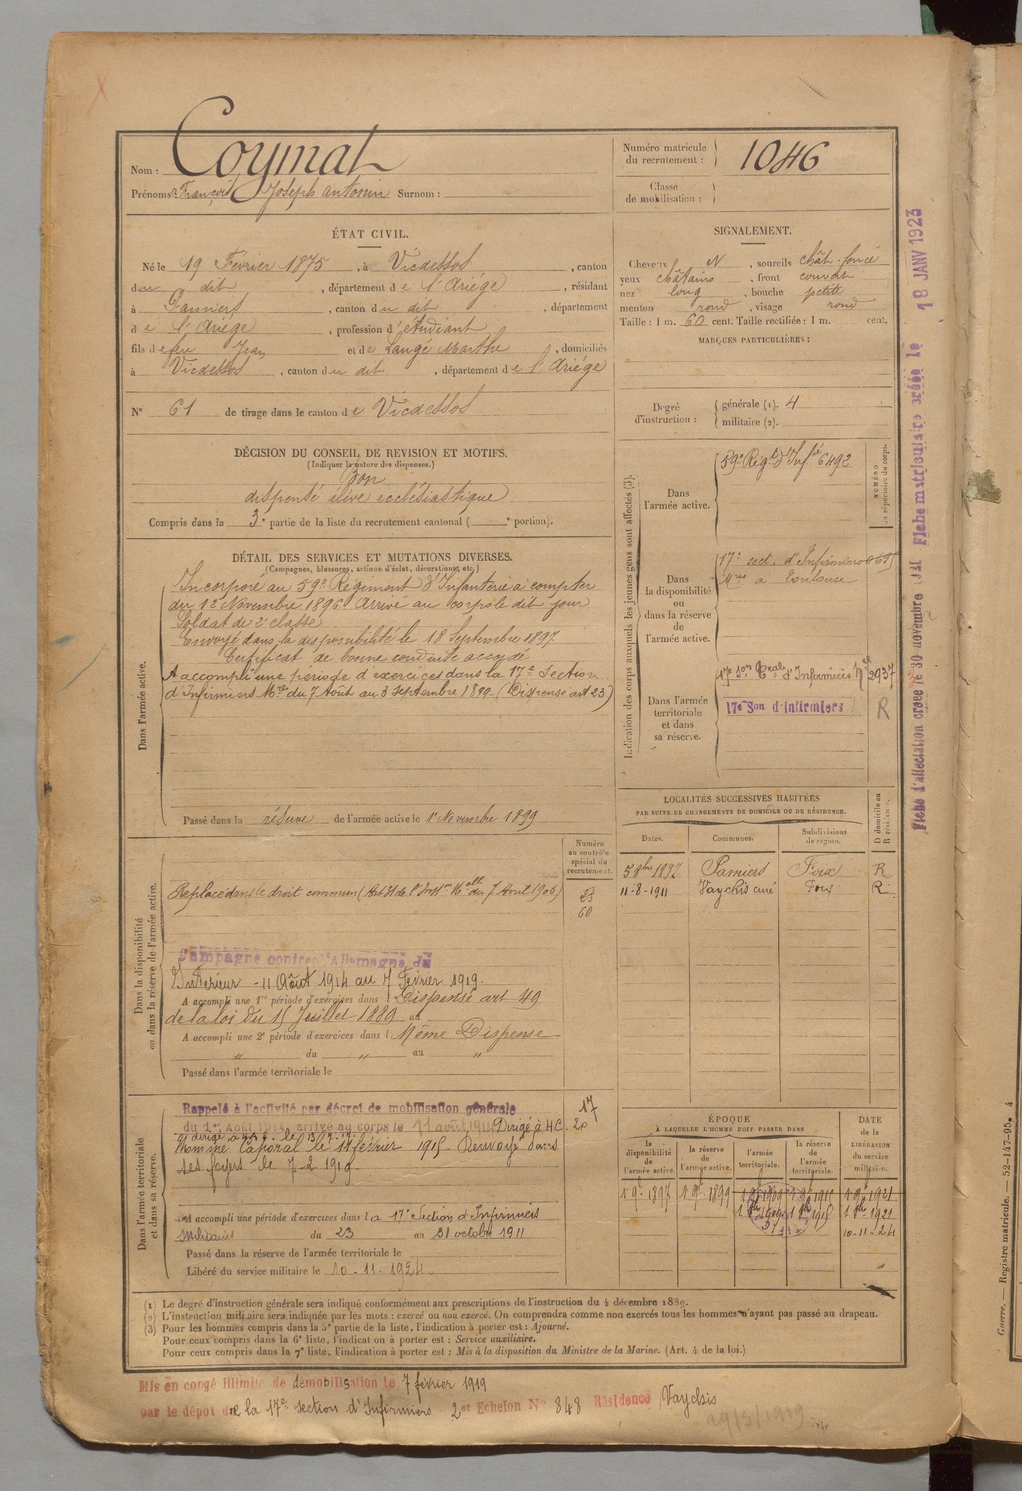 Nom : Coymat
Prénoms : François Joseph Antonin Surnom :
Numéro matricule du recrutement : 1046
Classe de mobilisation :
ÉTAT CIVIL.
Né le 19 Février 1875, à Vicdessos, canton
du dit, département de l'Ariége, résidant
à Pamiers, canton du dit, département
de l'Ariége, profession d'étudiant
fils de feu Jean et de Langé Marthe, domiciliés
à Vicdessos, canton du dit, département de l'Ariége
N° 61 de tirage dans le canton de Vicdessos
SIGNALEMENT.
Cheveux N, sourcils chât-foncé
yeux châtains, front couvert
nez long, bouche petite
menton rond, visage rond
Taille : 1 m. 60 cent. Taille rectifiée : 1 m. cent.
MARQUES PARTICULIÈRES :
Degré d'instruction : générale (1). 4
militaire (2).
DÉCISION DU CONSEIL DE REVISION ET MOTIFS.
(Indiquer la nature des dispenses.)
Bon
dispensé élève ecclésiastique
Compris dans la 3e partie de la liste du recrutement cantonal ( e portion).
DÉTAIL DES SERVICES ET MUTATIONS DIVERSES.
(Campagnes, blessures, actions d'éclat, décorations, etc.)
Dans l'armée active.
Incorporé au 59e Régiment d'Infanterie à compter
du 12 Novembre 1896. Arrivé au corps le dit jour
Soldat de 2e classe
Envoyé dans la disponibilité le 18 Septembre 1897.
Certificat de bonne conduite accordé
A accompli une période d'exercices dans la 17e Section
d'Infirmiers Mres du 7 Août au 3 Septembre 1899 (Dispensé art 23)
Passé dans la réserve de l'armée active le 1er Novembre 1899
Indication des corps auxquels les jeunes gens sont affectés (3).
NUMÉRO au répertoire du corps.
Dans l'armée active.
59e Régt d'Infie 6492
Dans la disponibilité ou dans la réserve de l'armée active.
17e sect. d'Infirmiers
Mres à Toulouse
Dans l'armée territoriale et dans sa réserve.
17e Son Teale d'Infirmiers Mres 2937
17e Son d'Infirmiers R
LOCALITÉS SUCCESSIVES HABITÉES
PAR SUITE DE CHANGEMENTS DE DOMICILE OU DE RÉSIDENCE.
Dates. Communes. Subdivisions de région. D domicile ou R résidence.
5 8bre 1897 Pamiers Foix R
11-8-1911 Vaychis curé Foix R
Dans la disponibilité ou dans la réserve de l'armée active.
Numéro au contrôle spécial du recrutement.
Replacé dans le droit commun (Art 31 de l'Inston Mlle du 7 Avril 1906)
23
60
Campagne contre l'Allemagne du
Intérieur - 11 Août 1914 au 7 Février 1919.
A accompli une 1re période d'exercices dans l Dispensé art 49
de la loi du 15 Juillet 1889 au
A accompli une 2e période d'exercices dans l Même Dispense
" du " au "
Passé dans l'armée territoriale le
Dans l'armée territoriale et dans sa réserve.
Rappelé à l'activité par décret de mobilisation générale
du 1er Août 1914, arrivé au corps le 11 août 1914 Dirigé à HC. 20
17
Nommé Caporal le 14 février 1915. Renvoyé dans
ses foyers le 7-2-1919
A accompli une période d'exercices dans la 17e Section d'Infirmiers
Militaires du 23 au 31 octobre 1911
Passé dans la réserve de l'armée territoriale le
Libéré du service militaire le 10-11-1924
ÉPOQUE
À LAQUELLE L'HOMME DOIT PASSER DANS
la disponibilité de l'armée active. la réserve de l'armée active. l'armée territoriale. la réserve de l'armée territoriale.
DATE de la LIBÉRATION du service militaire.
1 9e 1897 1 9e 1899 1 9e 1909 1 9e 1915 1 9e 1921
1 8e 1909 1 8e 1915 1 8e 1921
10-11-24
(1) Le degré d'instruction générale sera indiqué conformément aux prescriptions de l'instruction du 4 décembre 1889.
(2) L'instruction militaire sera indiquée par les mots : exercé ou non exercé. On comprendra comme non exercés tous les hommes n'ayant pas passé au drapeau.
(3) Pour les hommes compris dans la 5e partie de la liste, l'indication à porter est : Ajourné.
Pour ceux compris dans la 6e liste, l'indication à porter est : Service auxiliaire.
Pour ceux compris dans la 7e liste, l'indication à porter est : Mis à la disposition du Ministre de la Marine. (Art. 4 de la loi.)
Mis en congé illimité de démobilisation le 7 février 1919
par le dépôt de la 17e section d'Infirmiers 2e Echelon No 848 Résidence Vaychis
19/3/1919
Fiche d'affectation créée le 30 novembre Fiche matriculaire créée le 18 JANV 1923
Guerre. — Registre matricule. — 52-147-95. 4